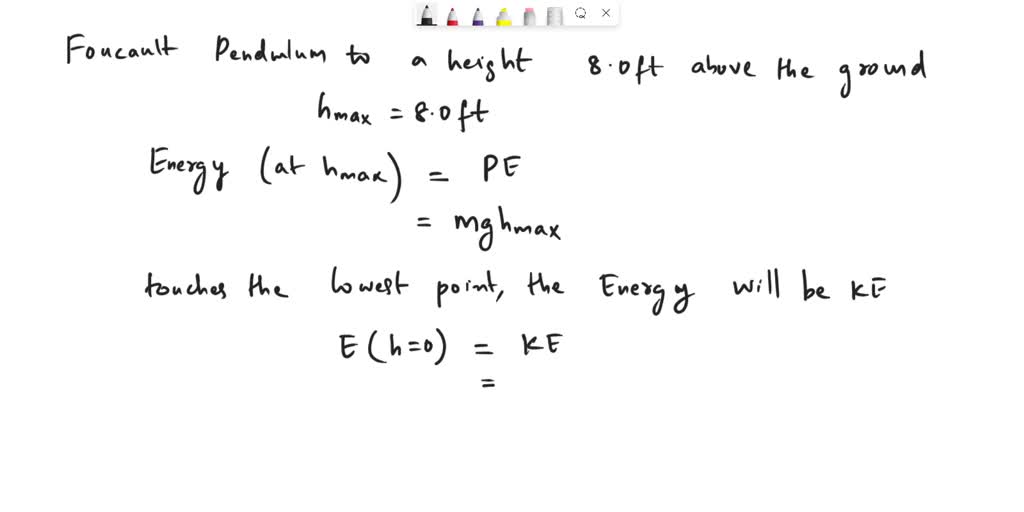 Foucault Pendulum to a height 8.0ft above the ground
hmax = 8.0ft
Energy (at hmax) = PE
= mghmax
touches the lowest point, the Energy will be KE
E(h=0) = KE
=